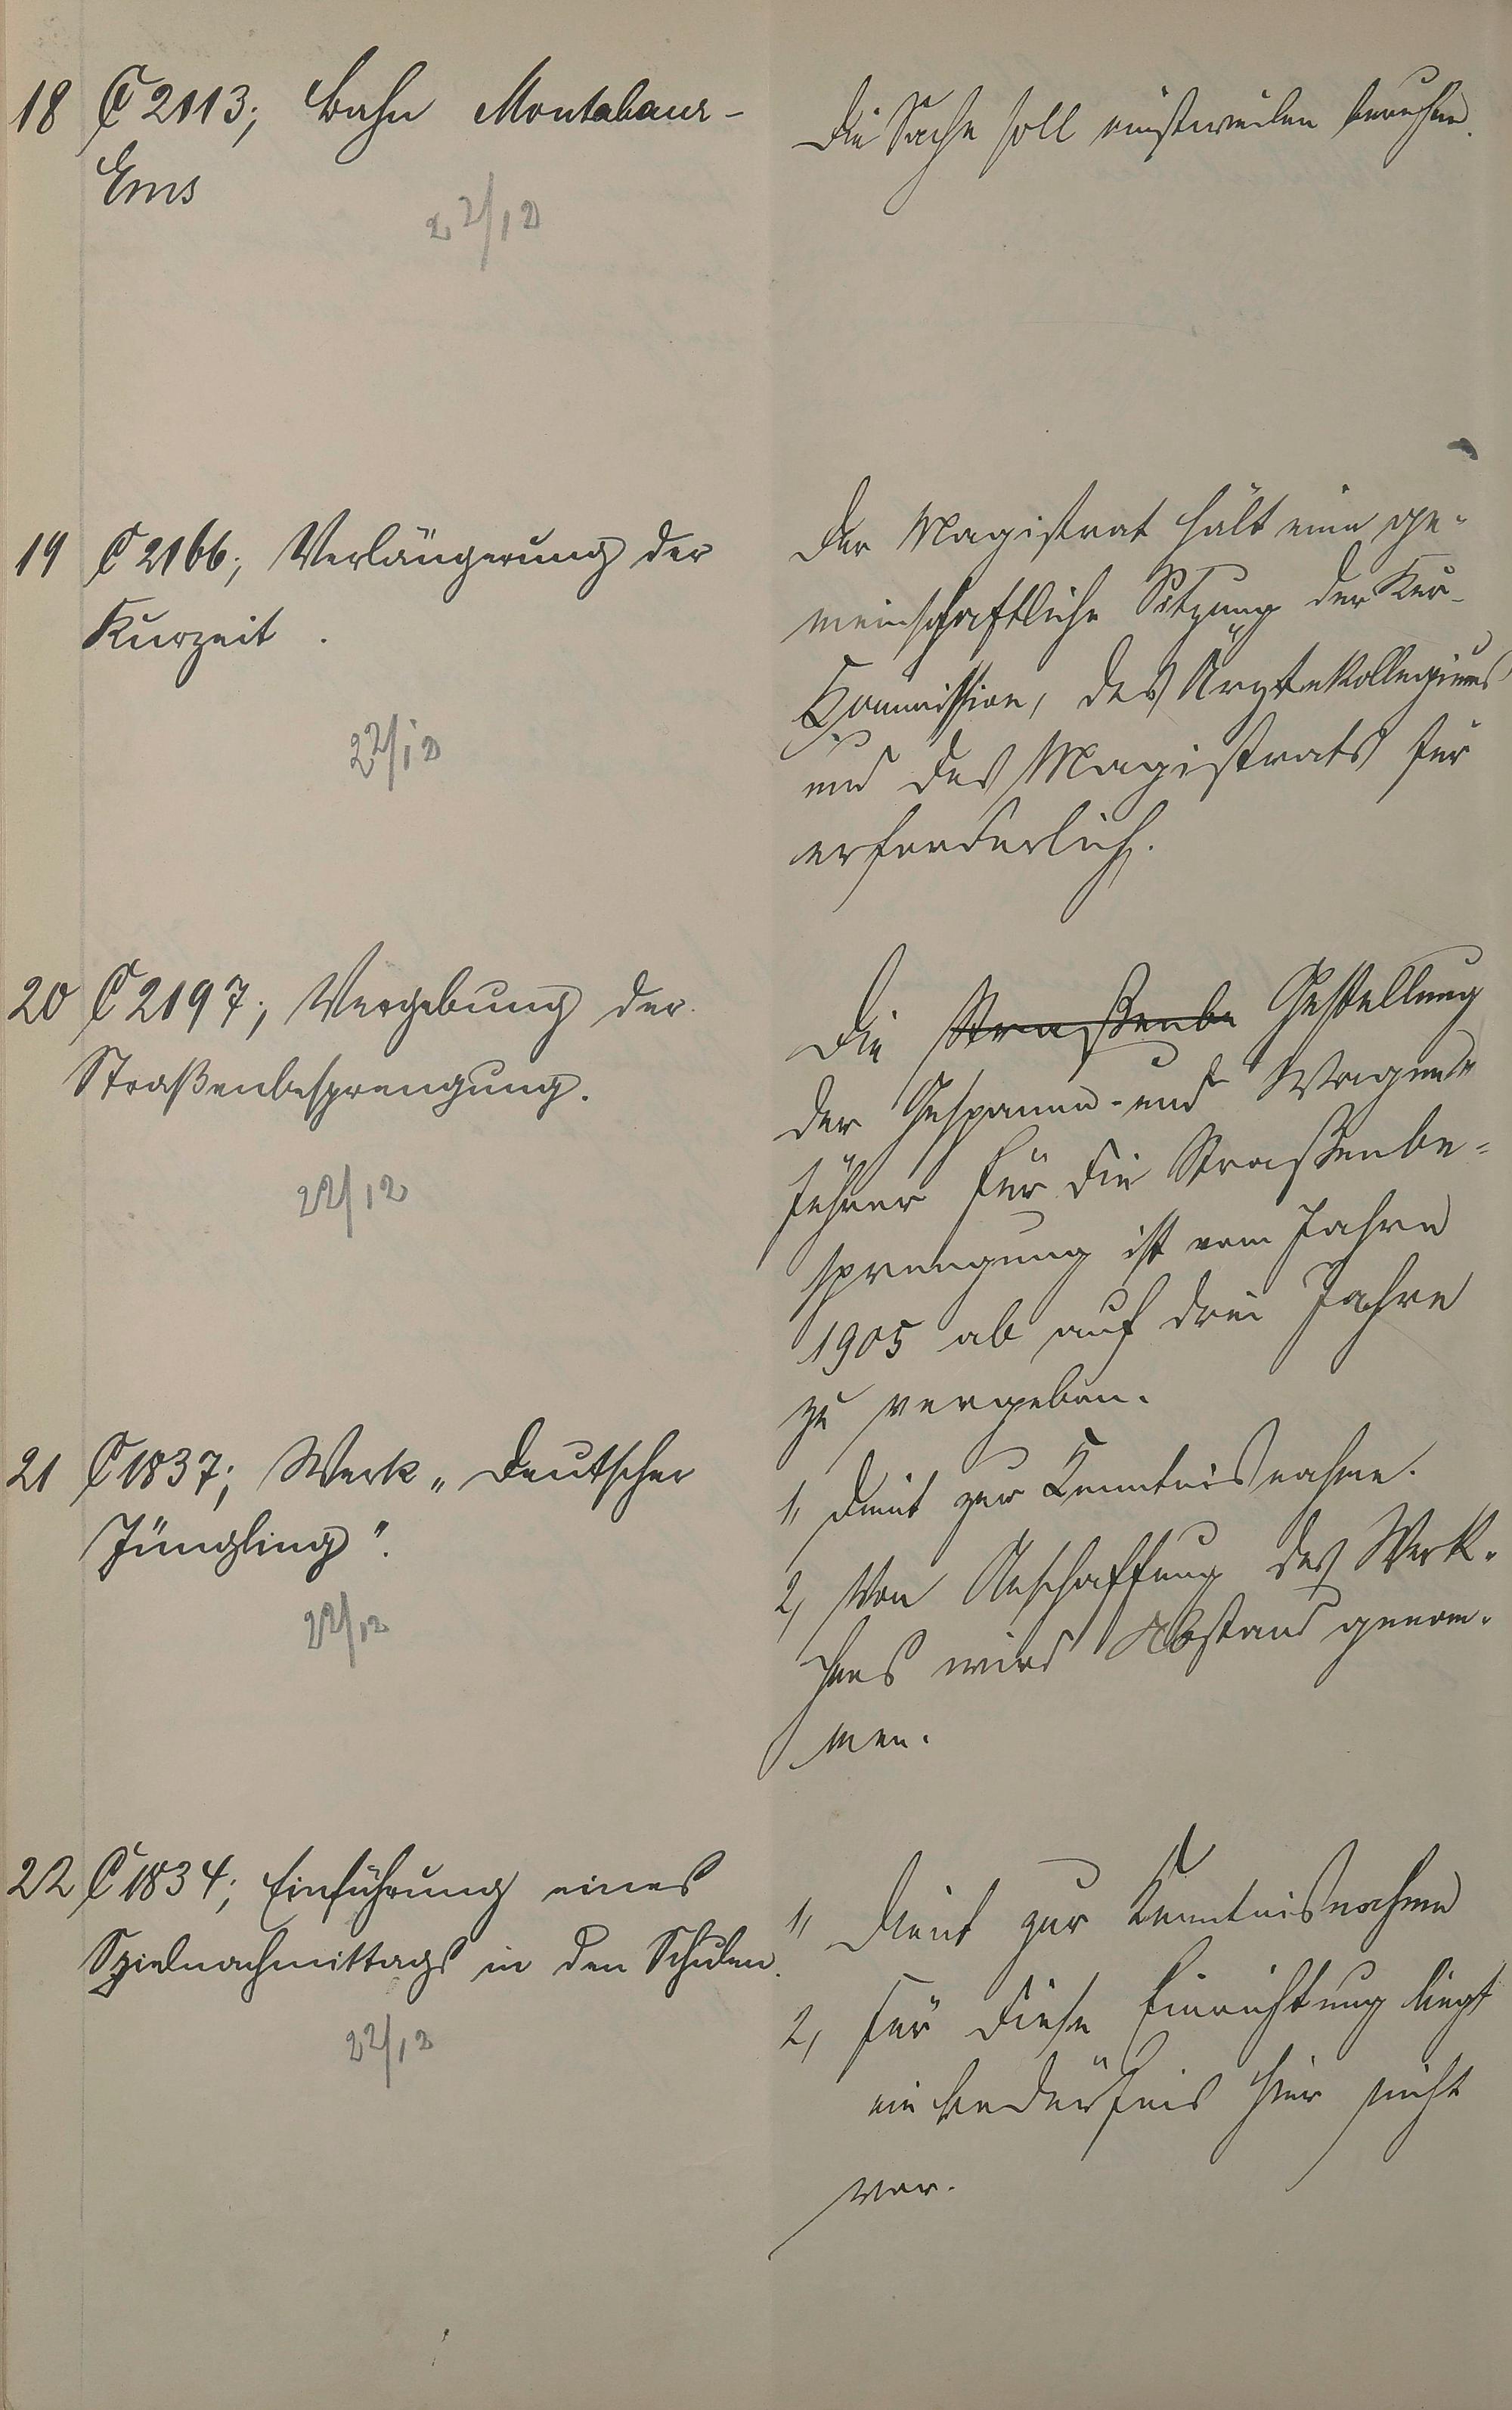 18 C 2113; Bahn Montabaur-
Ems
22/12
Die Sache soll einstweilen beruhen.
19 C 2166; Verlängerung der
Kurzeit.
22/12
Der Magistrat hält eine ge-
meinschaftliche Sitzung der Kur-
Kommission, des Ärztekollegiums
und des Magistrats für
erforderlich.
20 C 2197; Vergebung der
Straßenbesprengung.
22/12
Die Straßenbe Gestellung
der Gespanne- und Wagen-
führer für die Straßenbe-
sprengung ist vom Jahre
1905 ab auf drei Jahre
zu vergeben.
21 C 1837; Werk "Deutscher
Jüngling".
22/12
1, Dient zur Kenntnisnahme.
2, Von Anschaffung des Werk-
chens wird Abstand genom-
men.
22 C 1834; Einführung eines
Spielnachmittags in den Schulen.
22/12
1, Dient zur Kenntnisnahme
2, Für diese Einrichtung liegt
ein Bedürfnis hier nicht
vor.